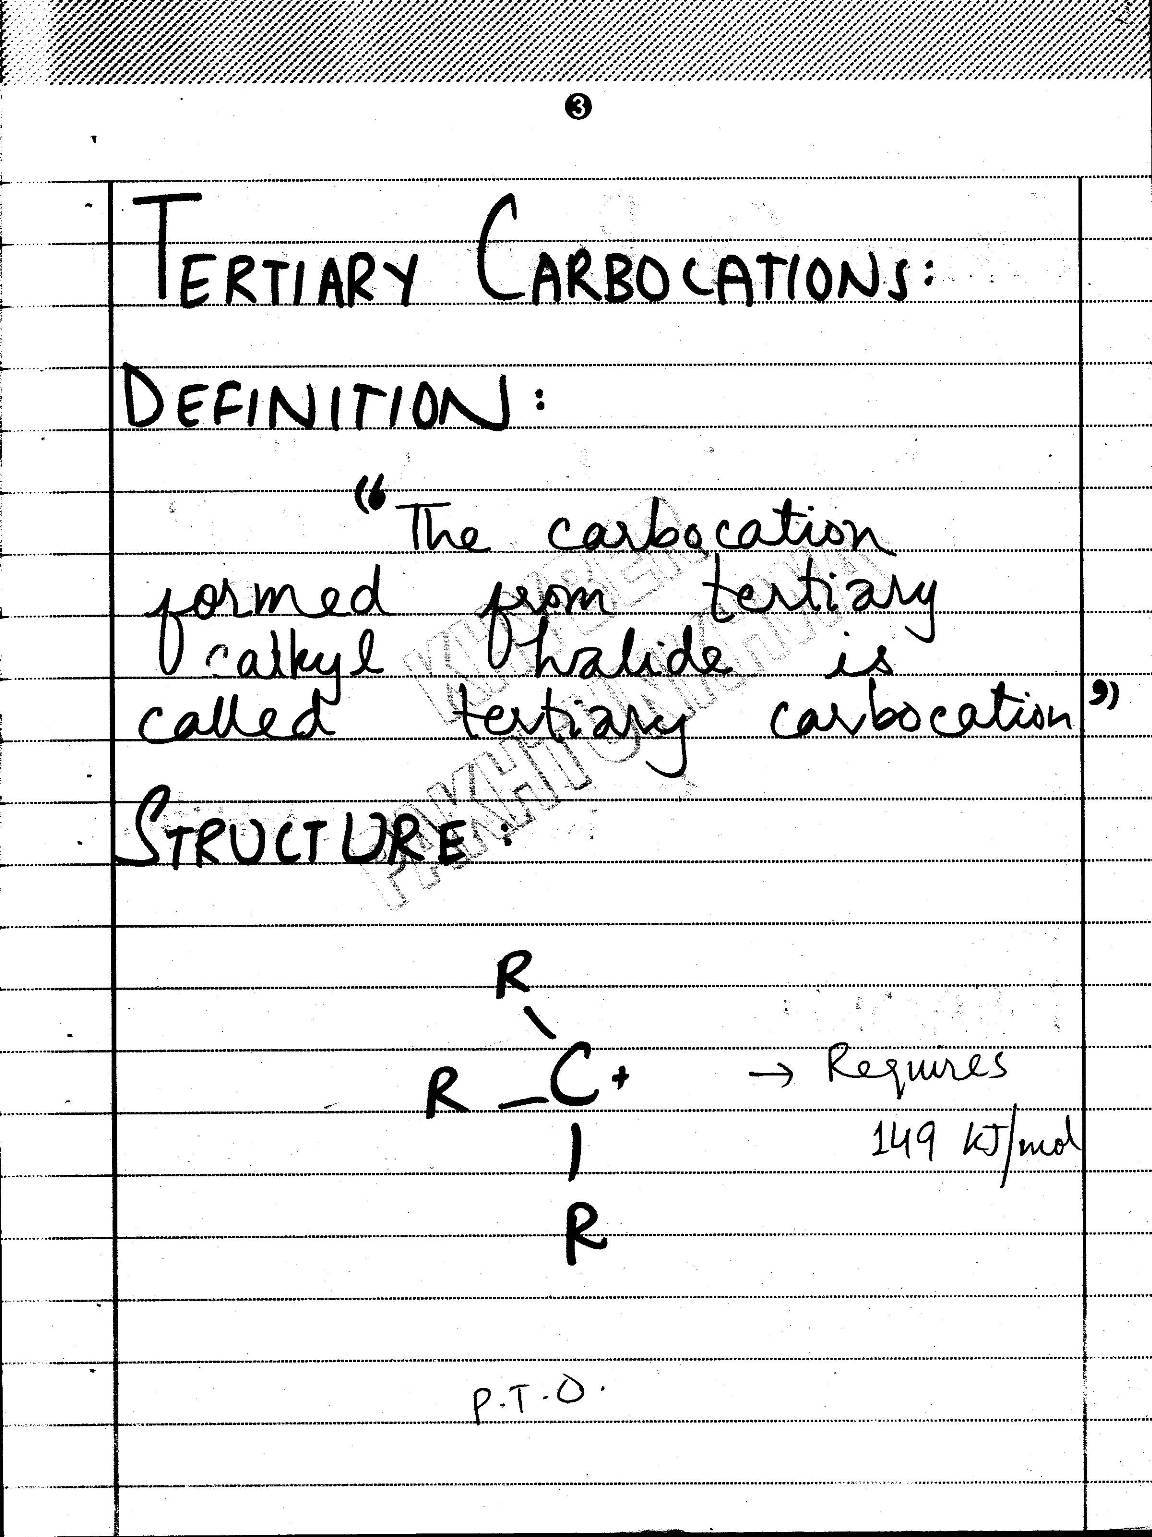 3
TERTIARY CARBOCATIONS:
DEFINITION:
"The carbocation
formed from tertiary
alkyl halide is
called tertiary carbocation"
KHYBER
PAKHTUNKHWA
STRUCTURE:
R
R - C + → Requires
149 KJ/mol
R
P.T.O.